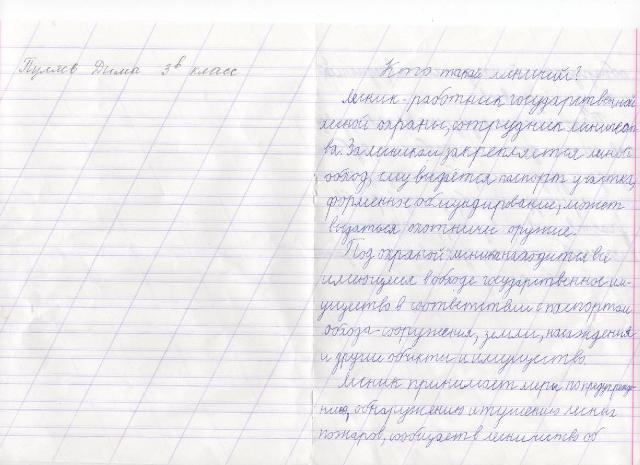 Пуляев Дима 3в класс
Кто такой лесничий?
Лесник - работник государственной
лесной охраны, сотрудник лесничест
ва. За лесником закрепляется лесной
обход, ему выдаётся паспорт участка,
форменное обмундирование, может
выдаться охотничье оружие.
Под охраной лесника находится всё
имеющееся в обходе государственное им-
ущество в соответствии с паспортом
обхода - сооружения, земли, насаждения
и другие объекты и имущество.
Лесник принимает меры по предупрежде-
нию, обнаружению и тушению лесных
пожаров, сообщает в лесничество об